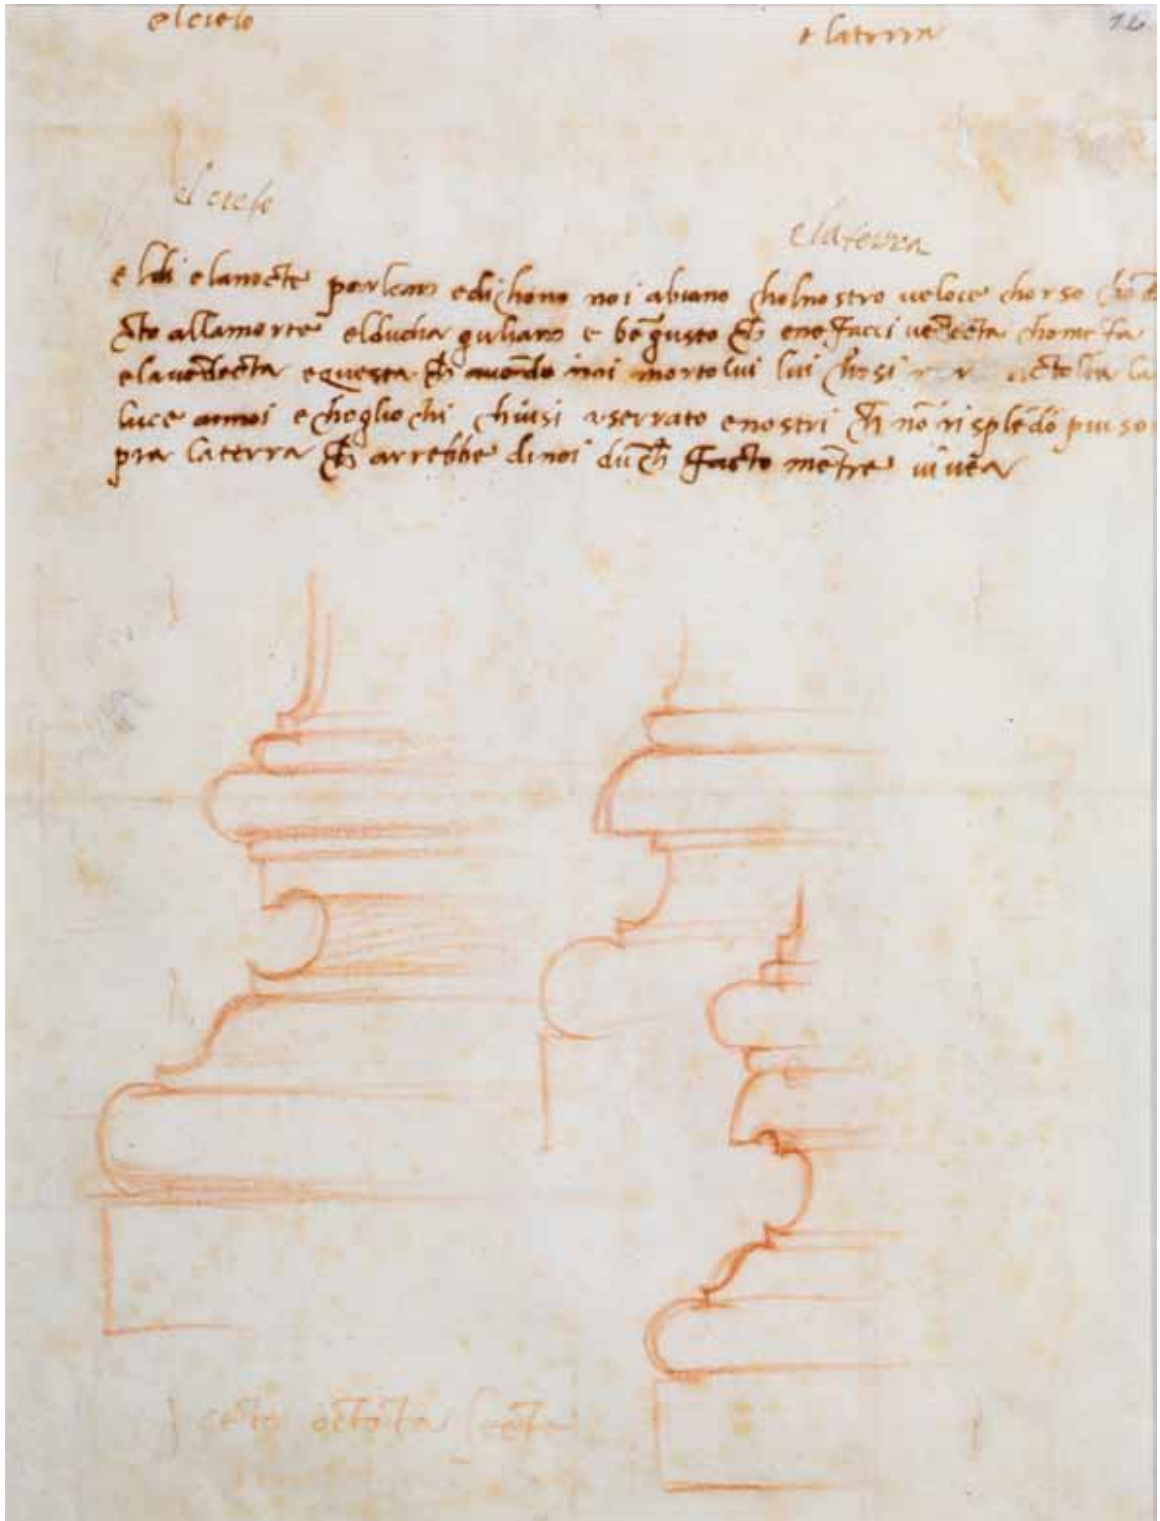 el cielo e la terra 16
el cielo
e la terra
el di e la nocte parlano e dichono noi abiano chol nostro veloce chorso chō
dōcto alla morte el ducha guliano e bē gusto ch̄ e ne facci vēdecta chome fa
e la vēdecta e questa ch̄ avēdo noi morto lui lui chosi morto a tolta la
luce a noi e chogli ochi chiusi a serrato e nostri ch̄ nō risplēdō piu so
pra la terra ch̄ arrebbe di noi dūch̄ facto mētre vivea
cēto octāta